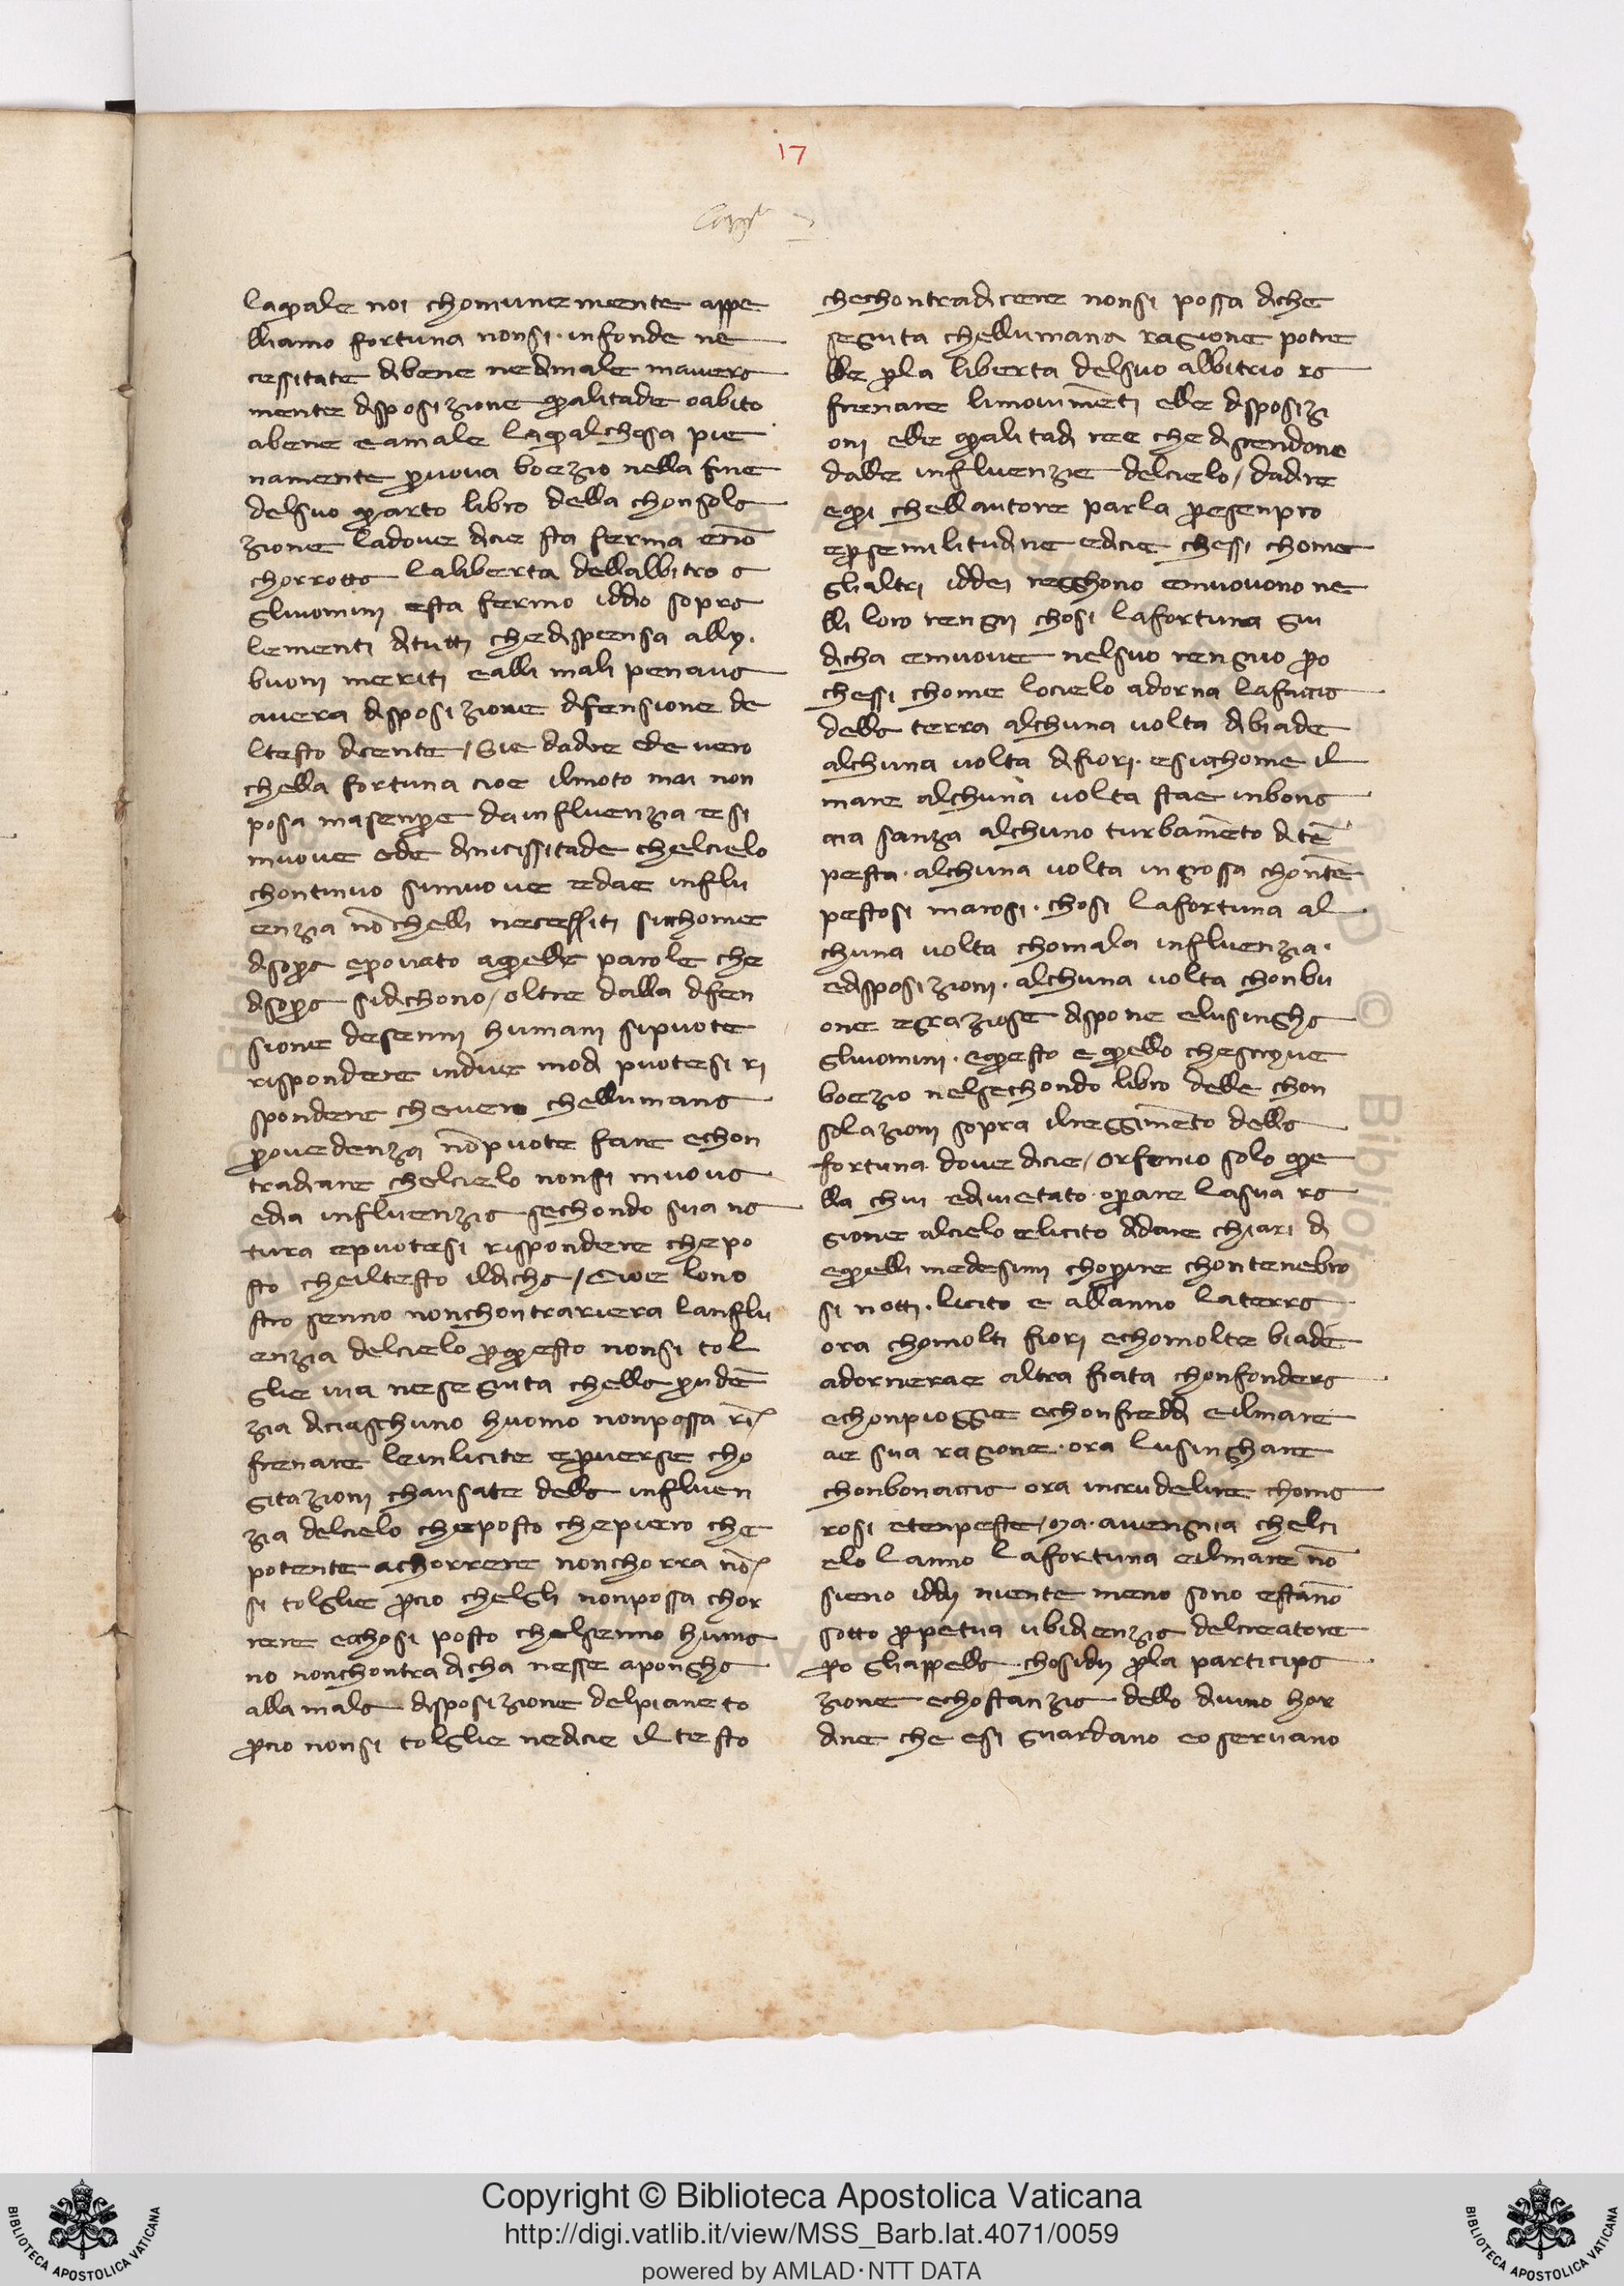 17
laquale noi chomunemente appe
lliamo fortuna nonsi infonde ne
cessitate dibene nedimale mavera
mente disposizione qualitade oabito
abene eamale laqualchosa pie
namente pruova boezio nella fine
delsuo quarto libro della chonsola
zione ladove dicie sta ferma enō
chorrotta laliberta dellalbitro a
gliuomini esta fermo iddio sopra
lementi ditutti chedispensa ally
buoni meriti ealli mali penava
avera disposizione difensione de
ltesto dicente / Sie dadire ede vero
chella fortuna cioe ilmoto mai non
posa masenpre dainfluenzia esi
muove ede dinicissitade chelcielo
chontinuo simuove edae influ
enzia nō chelli necessiti sicchome
disopra eprovato aquelle parole che
disopra sidichono / oltre dalla difen
sione desenni humani sipuote
rispondere indue modi puotesi ri
spondere chevero chellumana
provedenza nōpuote fare echon
tradiare chelcielo nonsi muova
edia influenzia sechondo sua na
tura epuotesi rispondere chepo
sto cheiltesto ildicha / Cioe lono
stro senno nonchontrariera lanflu
enzia delcielo perquesto nonsi tol
glie via neseguita chella prudē
zia diciaschuno huomo nonpossa ri
frenare leinlicite eperverse cho
gitazioni chausate della influen
zia delcielo cheposto chepiero che
potente achorrere nonchorra nō
si tolglie percio chelgli nonpossa chor
rere ecchosi posto chelsenno huma
no nonchontradicha nesse aponga
alla mala disposizione delpianeto
percio nonsi tolglie nedicie il testo
chechontradicere nonsi possa diche
seguita chellumana ragione potre
lle perla liberta delsuo albitrio ra
frenare limovimēti elle disposizi
oni elle qualitadi ree che discendono
dalle influenzie delcielo / dadire
equi chellautore parla peresenpro
epersemilitudine edicie chessi chome
glialtri iddei regghono emuovono ne
lli loro rengni chosi lafortuna giu
dicha emuove nelsuo rengno pero
chessi chome locielo adorna lafaccia
della terra alchuna volta dibiade
alchuna volta difiori esicchome il
mare alchuna volta stae inbona
cia sanza alchuno turbamēto di tē
pesta alchuna volta ingrossa chontē
pestosi marosi chosi lafortuna al
chuna volta chomala influenzia
edisposizioni alchuna volta chonbu
one egraziose dispone elusingha
gliuomini equesto equello chescrive
boezio nelsechondo libro delle chon
solazioni sopra ilreggimēto della
fortuna dove dicie / Orfemio solo que
lla chui edivietato oprare lasua ra
gione alcielo elicito didare chiari di
equelli medesimi choprire chontenebro
si notti licito e allanno laterra
ora chomolti fiori echomolte biade
adornerae altra fiata chonfondera
echonpioggie echonfreddi eilmare
ae sua ragione ora lusinghare
chonbonaccia ora incrudelire choma
rosi etenpeste / Ma avengnia chelci
elo lanno lafortuna eilmare nō
sieno iddii niente meno sono estanō
sotto perpetua ubidienzia delcreatore
pero gliappella chosidii perla participa
zione echostanzia dello divino hor
dine che esi guardano eoservano
Copyright © Biblioteca Apostolica Vaticana
http://digi.vatlib.it/view/MSS_Barb.lat.4071/0059
powered by AMLAD·NTT DATA
BIBLIOTECA APOSTOLICA VATICANA
BIBLIOTECA APOSTOLICA VATICANA